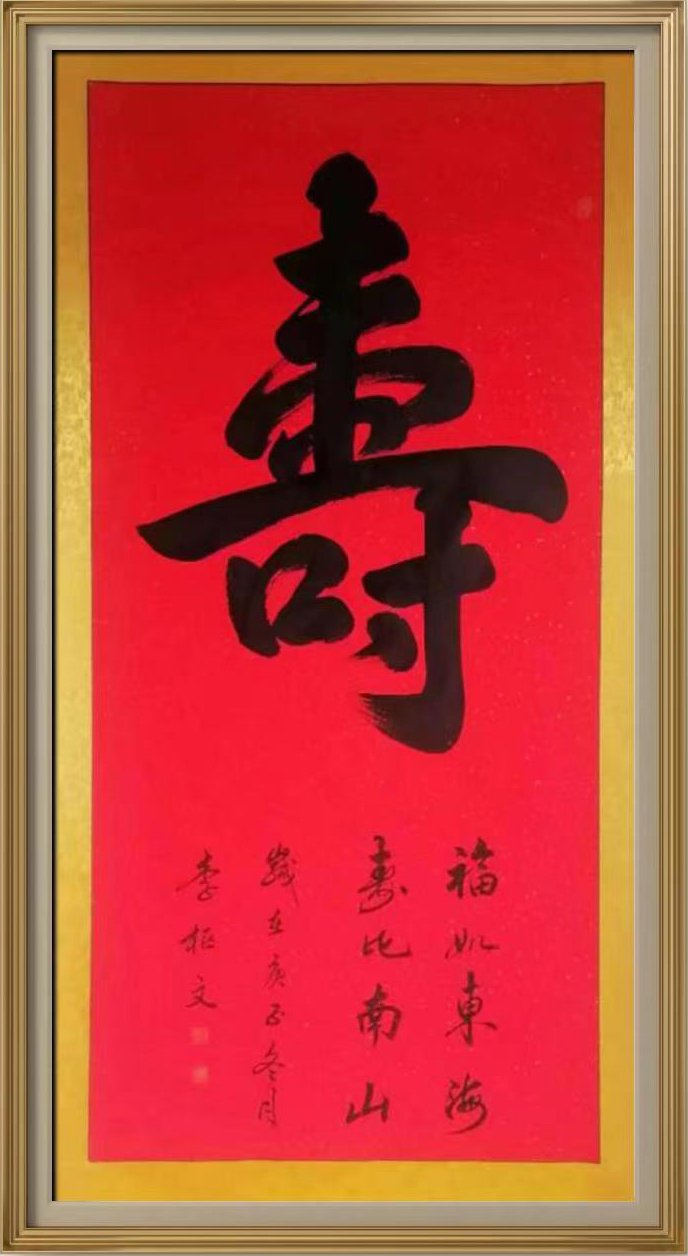 壽
福如東海
壽比南山
歲在庚子冬月
李振文